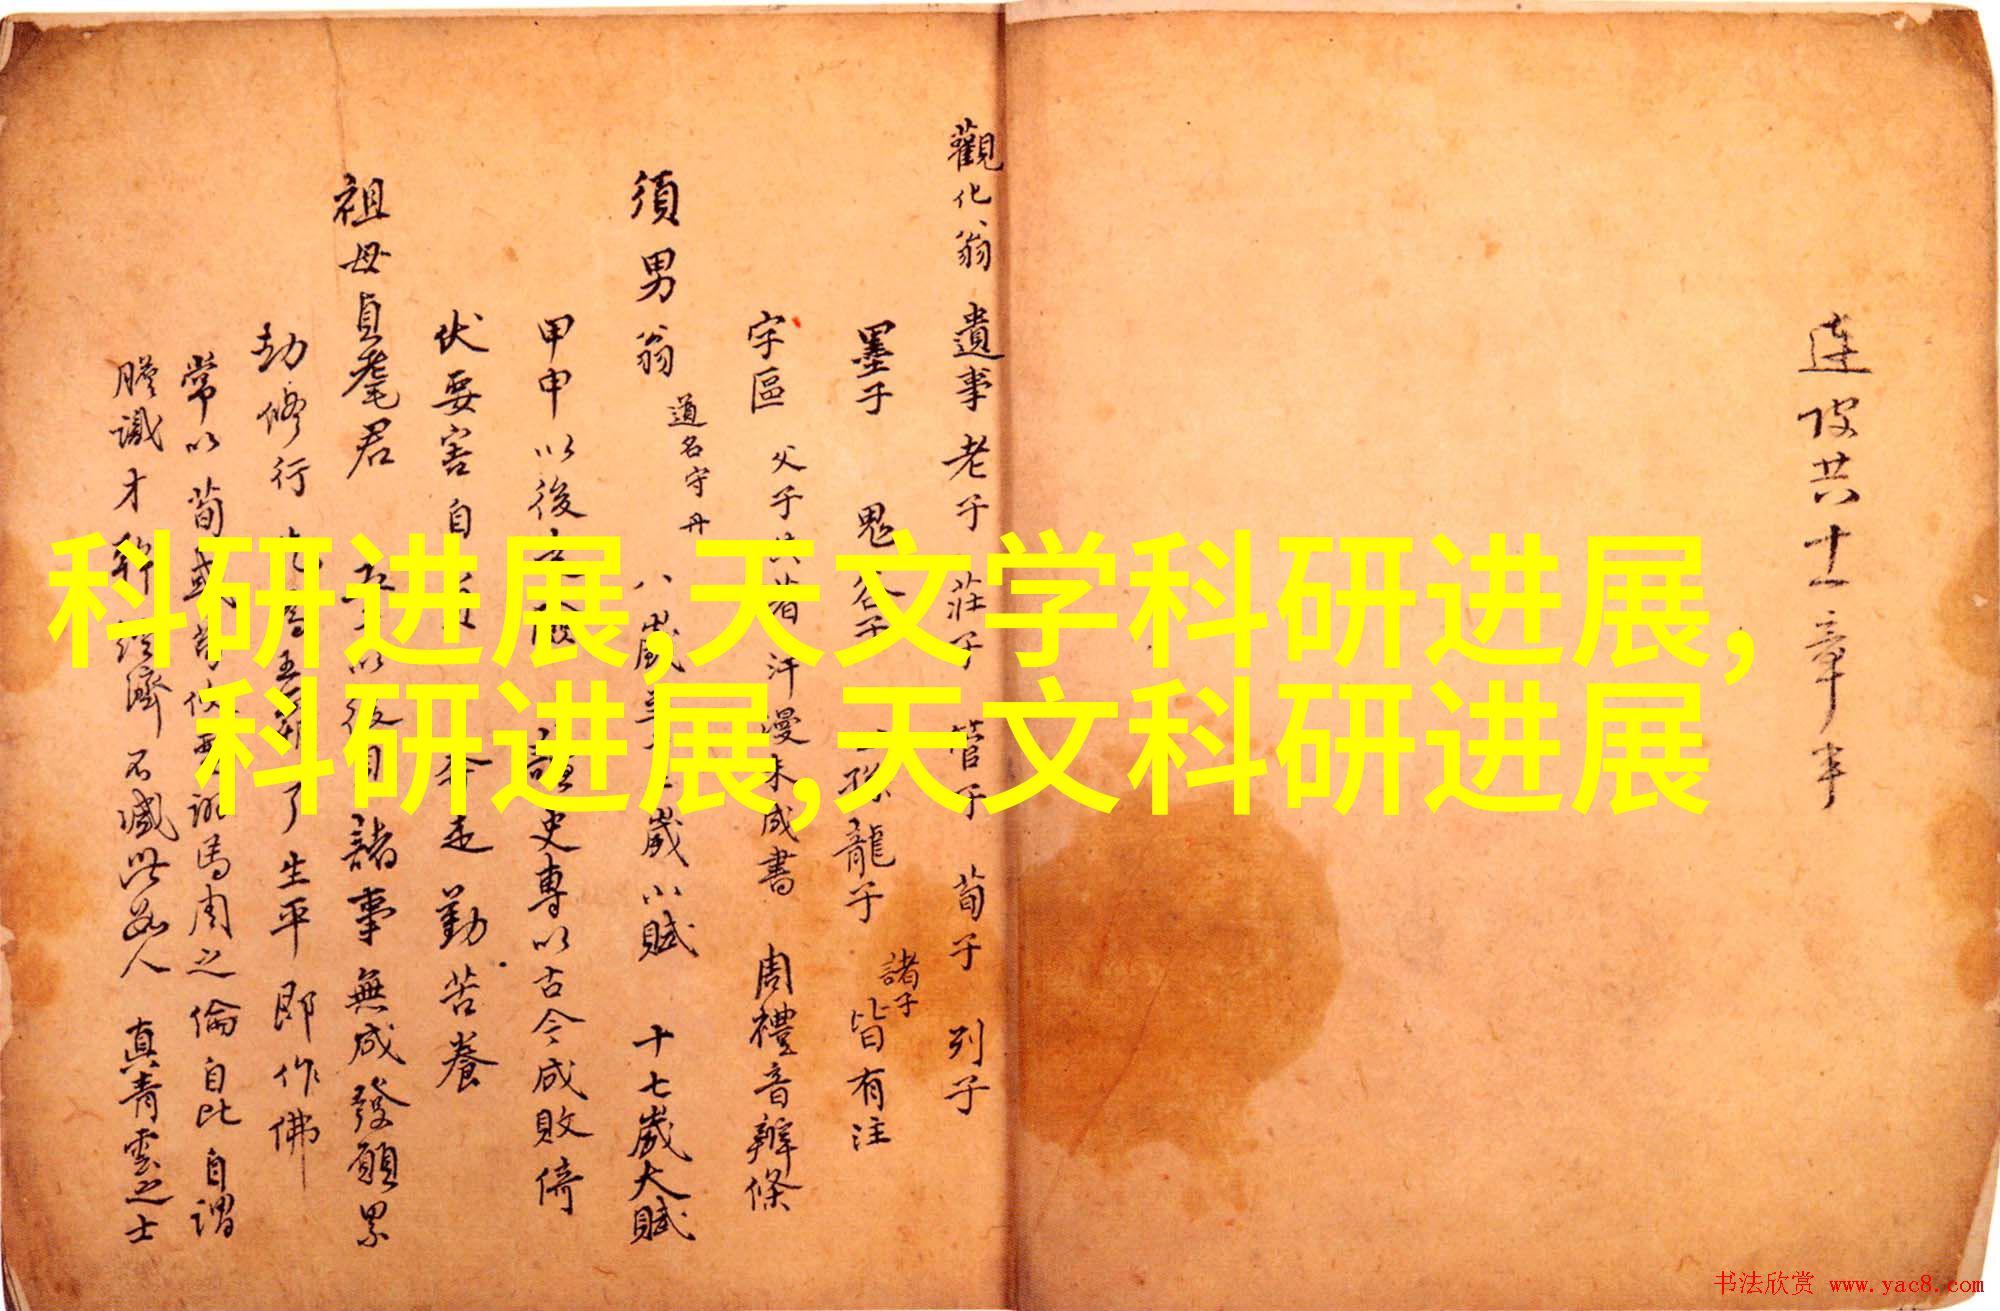 科研进展,天文学科研进展,
科研进展,天文科研进展
連皮共十一章半
觀化翁 遺事 老子 莊子 管子 荀子 列子
墨子 鬼谷子 公孫龍子 諸子皆有注
字區 父子共著 汗漫未成書 周禮音辨條
須男翁 道名守丹 八歲 歲小賦 十七歲大賦
甲申以後 史專以古今成敗倚
伏要害自 奔走勤苦養
祖母貞耄君 五十以後目諸事無成發願累
劫修行 了生平即作佛
常以荀彧 馬周之倫自比自謂
膽識才 經濟不減此兩人 真青雲之士
书法欣赏 www.yac8.com